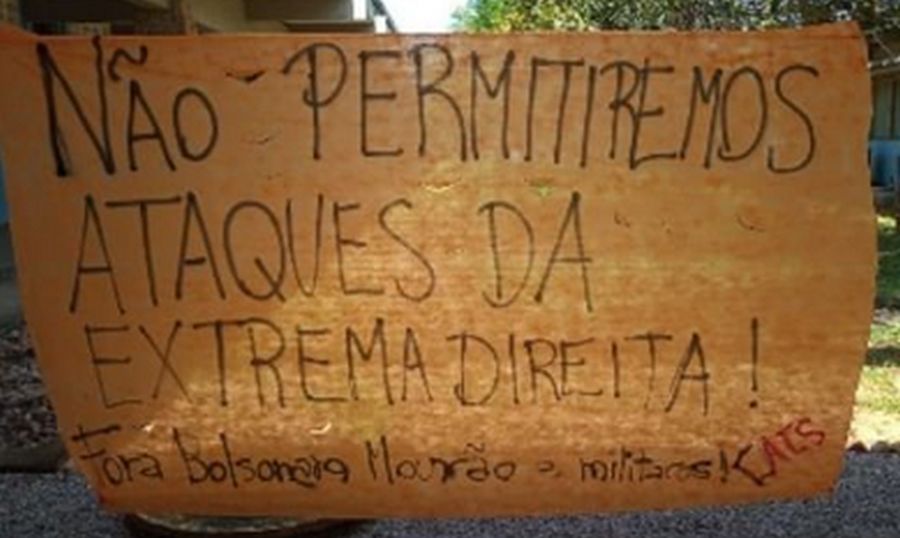 NÃO PERMITIREMOS
ATAQUES DA
EXTREMA DIREITA!
Fora Bolsonaro Mourão e militares! CAES